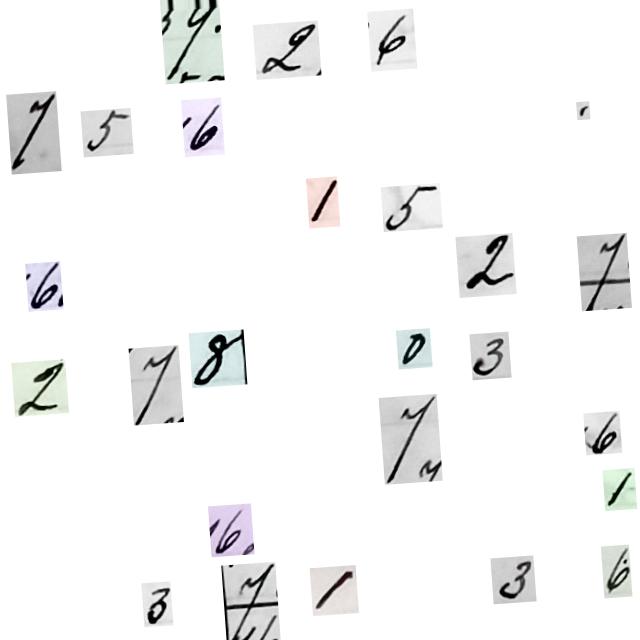 7 2 6
7 5 6
1 5
6 2 7
2 7 8 0 3
7 6
1
6
3 7 1 3 6